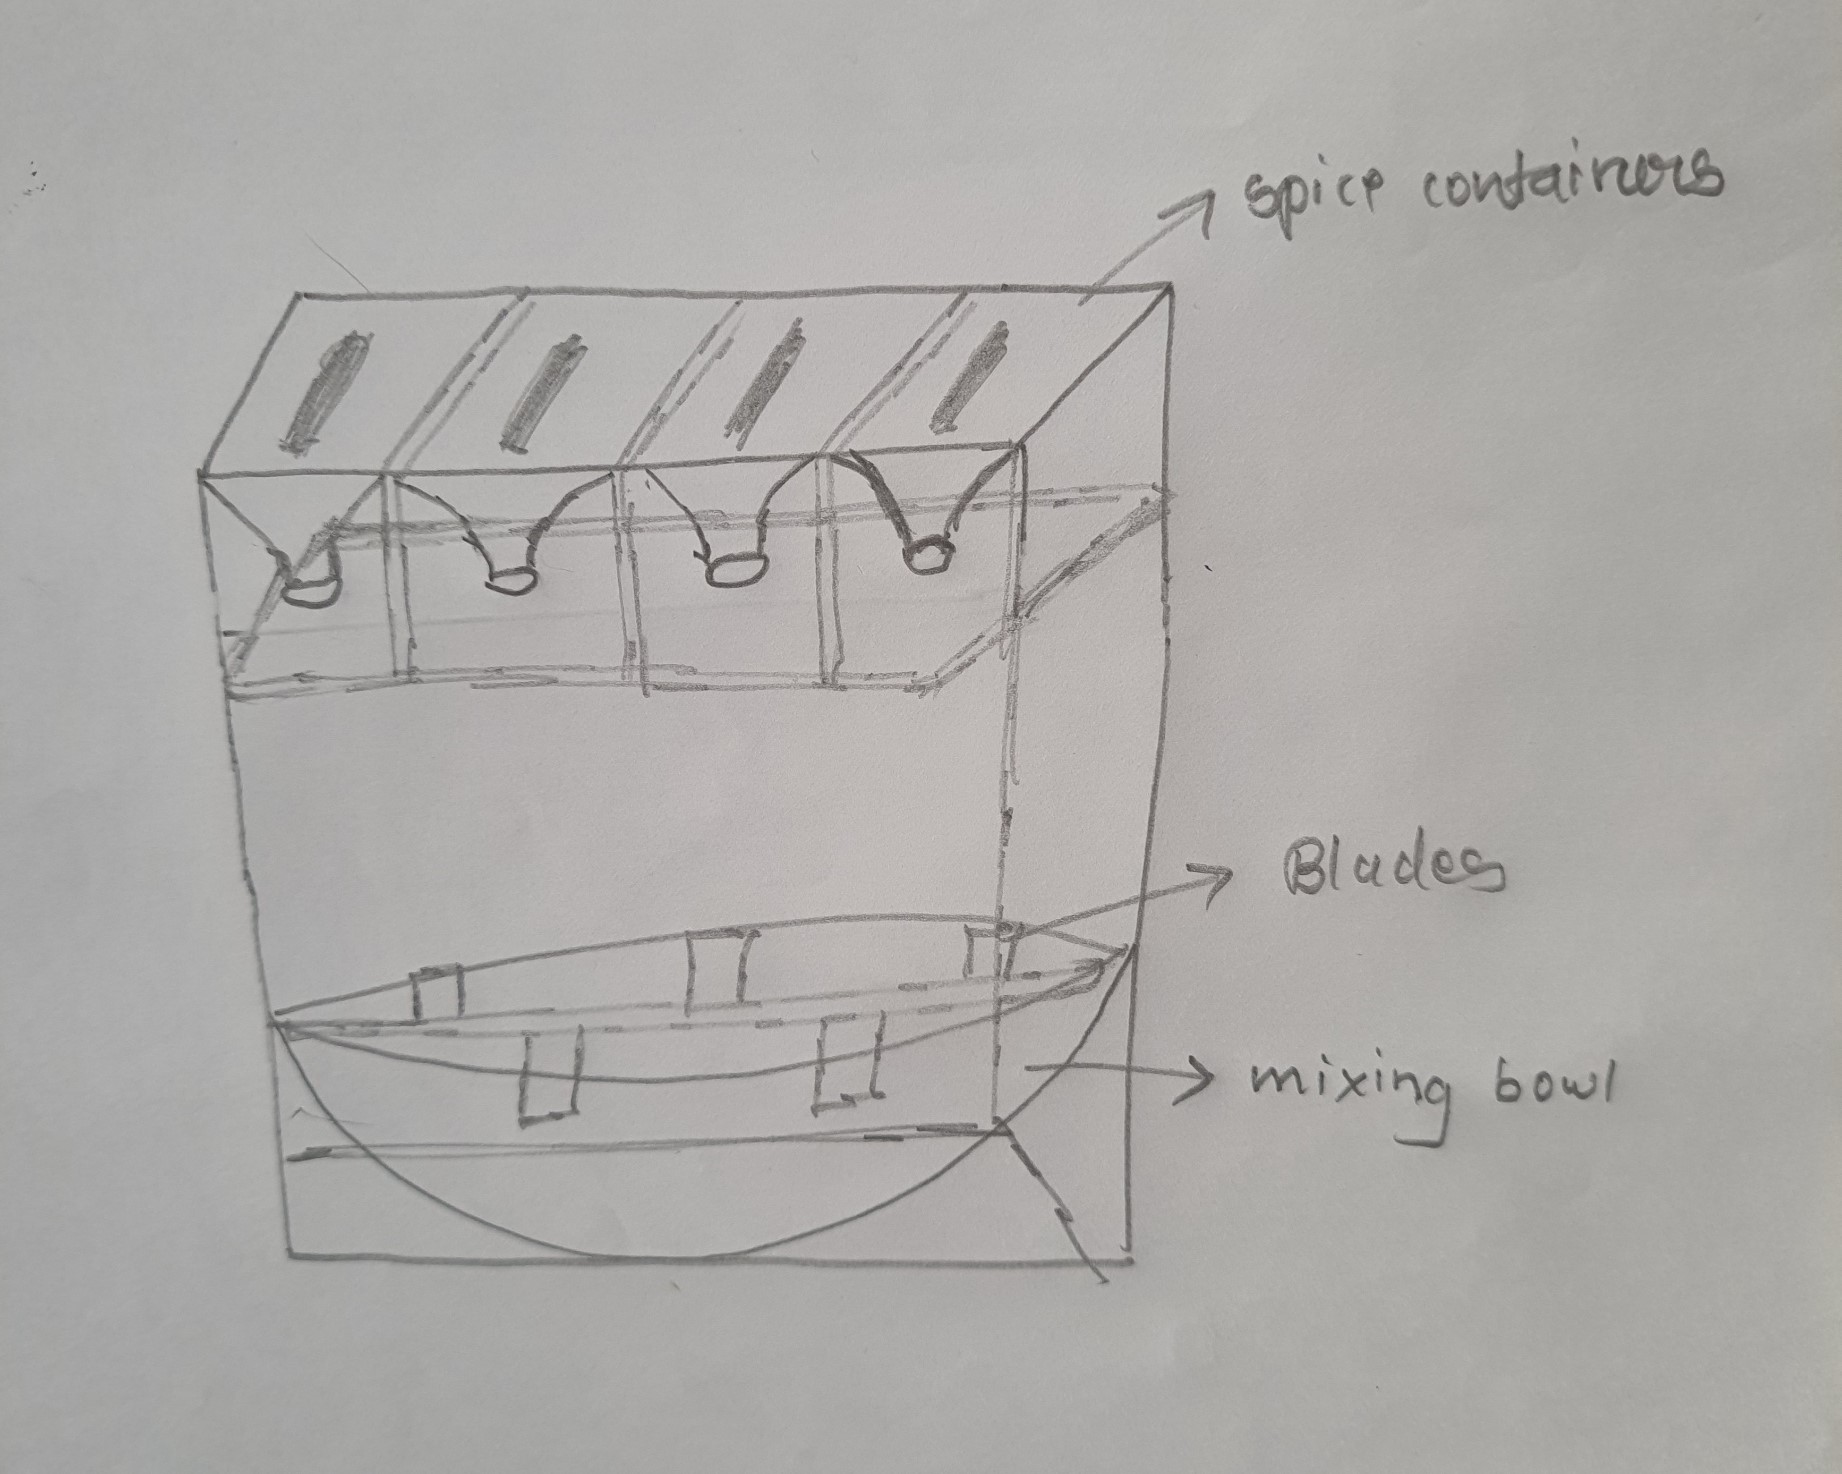 spice containers
Blades
mixing bowl